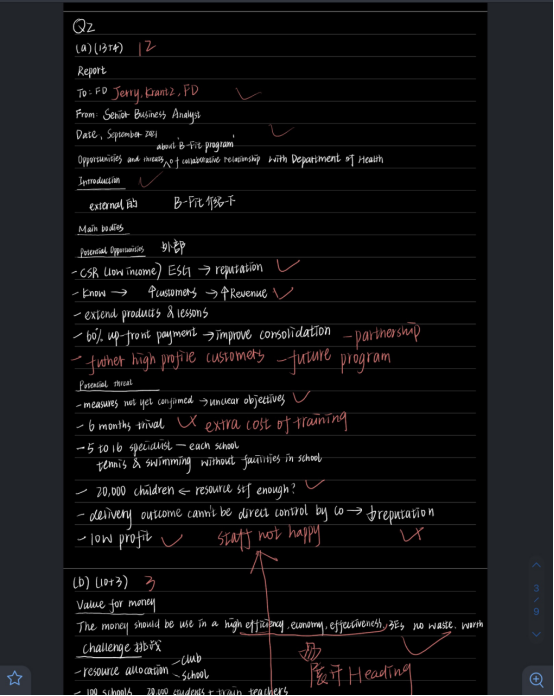 Q2
(a) (13+4) 12
Report
To: FD Jerry, Krantz, FD
From: Senior Business Analyst
Date, September 2021
about 'B-Fit program'
Opportunities and threats of collaborative relationship with Department of Health
Introduction
external的 B-Fit介绍一下
Main bodies
Potential Opportunities 外部
- CSR (low income) ESG → reputation
- Know → ↑customers → ↑Revenue
- extend products & lessons
- 60% up-front payment → improve consolidation - partnership
- futher high profile customers - future program
Potential threat
- measures not yet confirmed → unclear objectives
- 6 months trival extra cost of training
- 5 to 16 specialist - each school
tennis & swimming without facilities in school
- 20,000 children ← resource stf enough?
- delivery outcome cann't be direct control by co → ↓reputation
- low profit staff not happy
(b) (10+3) 3
Value for money
The money should be use in a high efficiency, economy, effectiveness, 3Es no waste. worth
challenge 挑战
- resource allocation - club
- school
展开 Heading
- 100 schools 20,000 students + train teachers
3
/
9